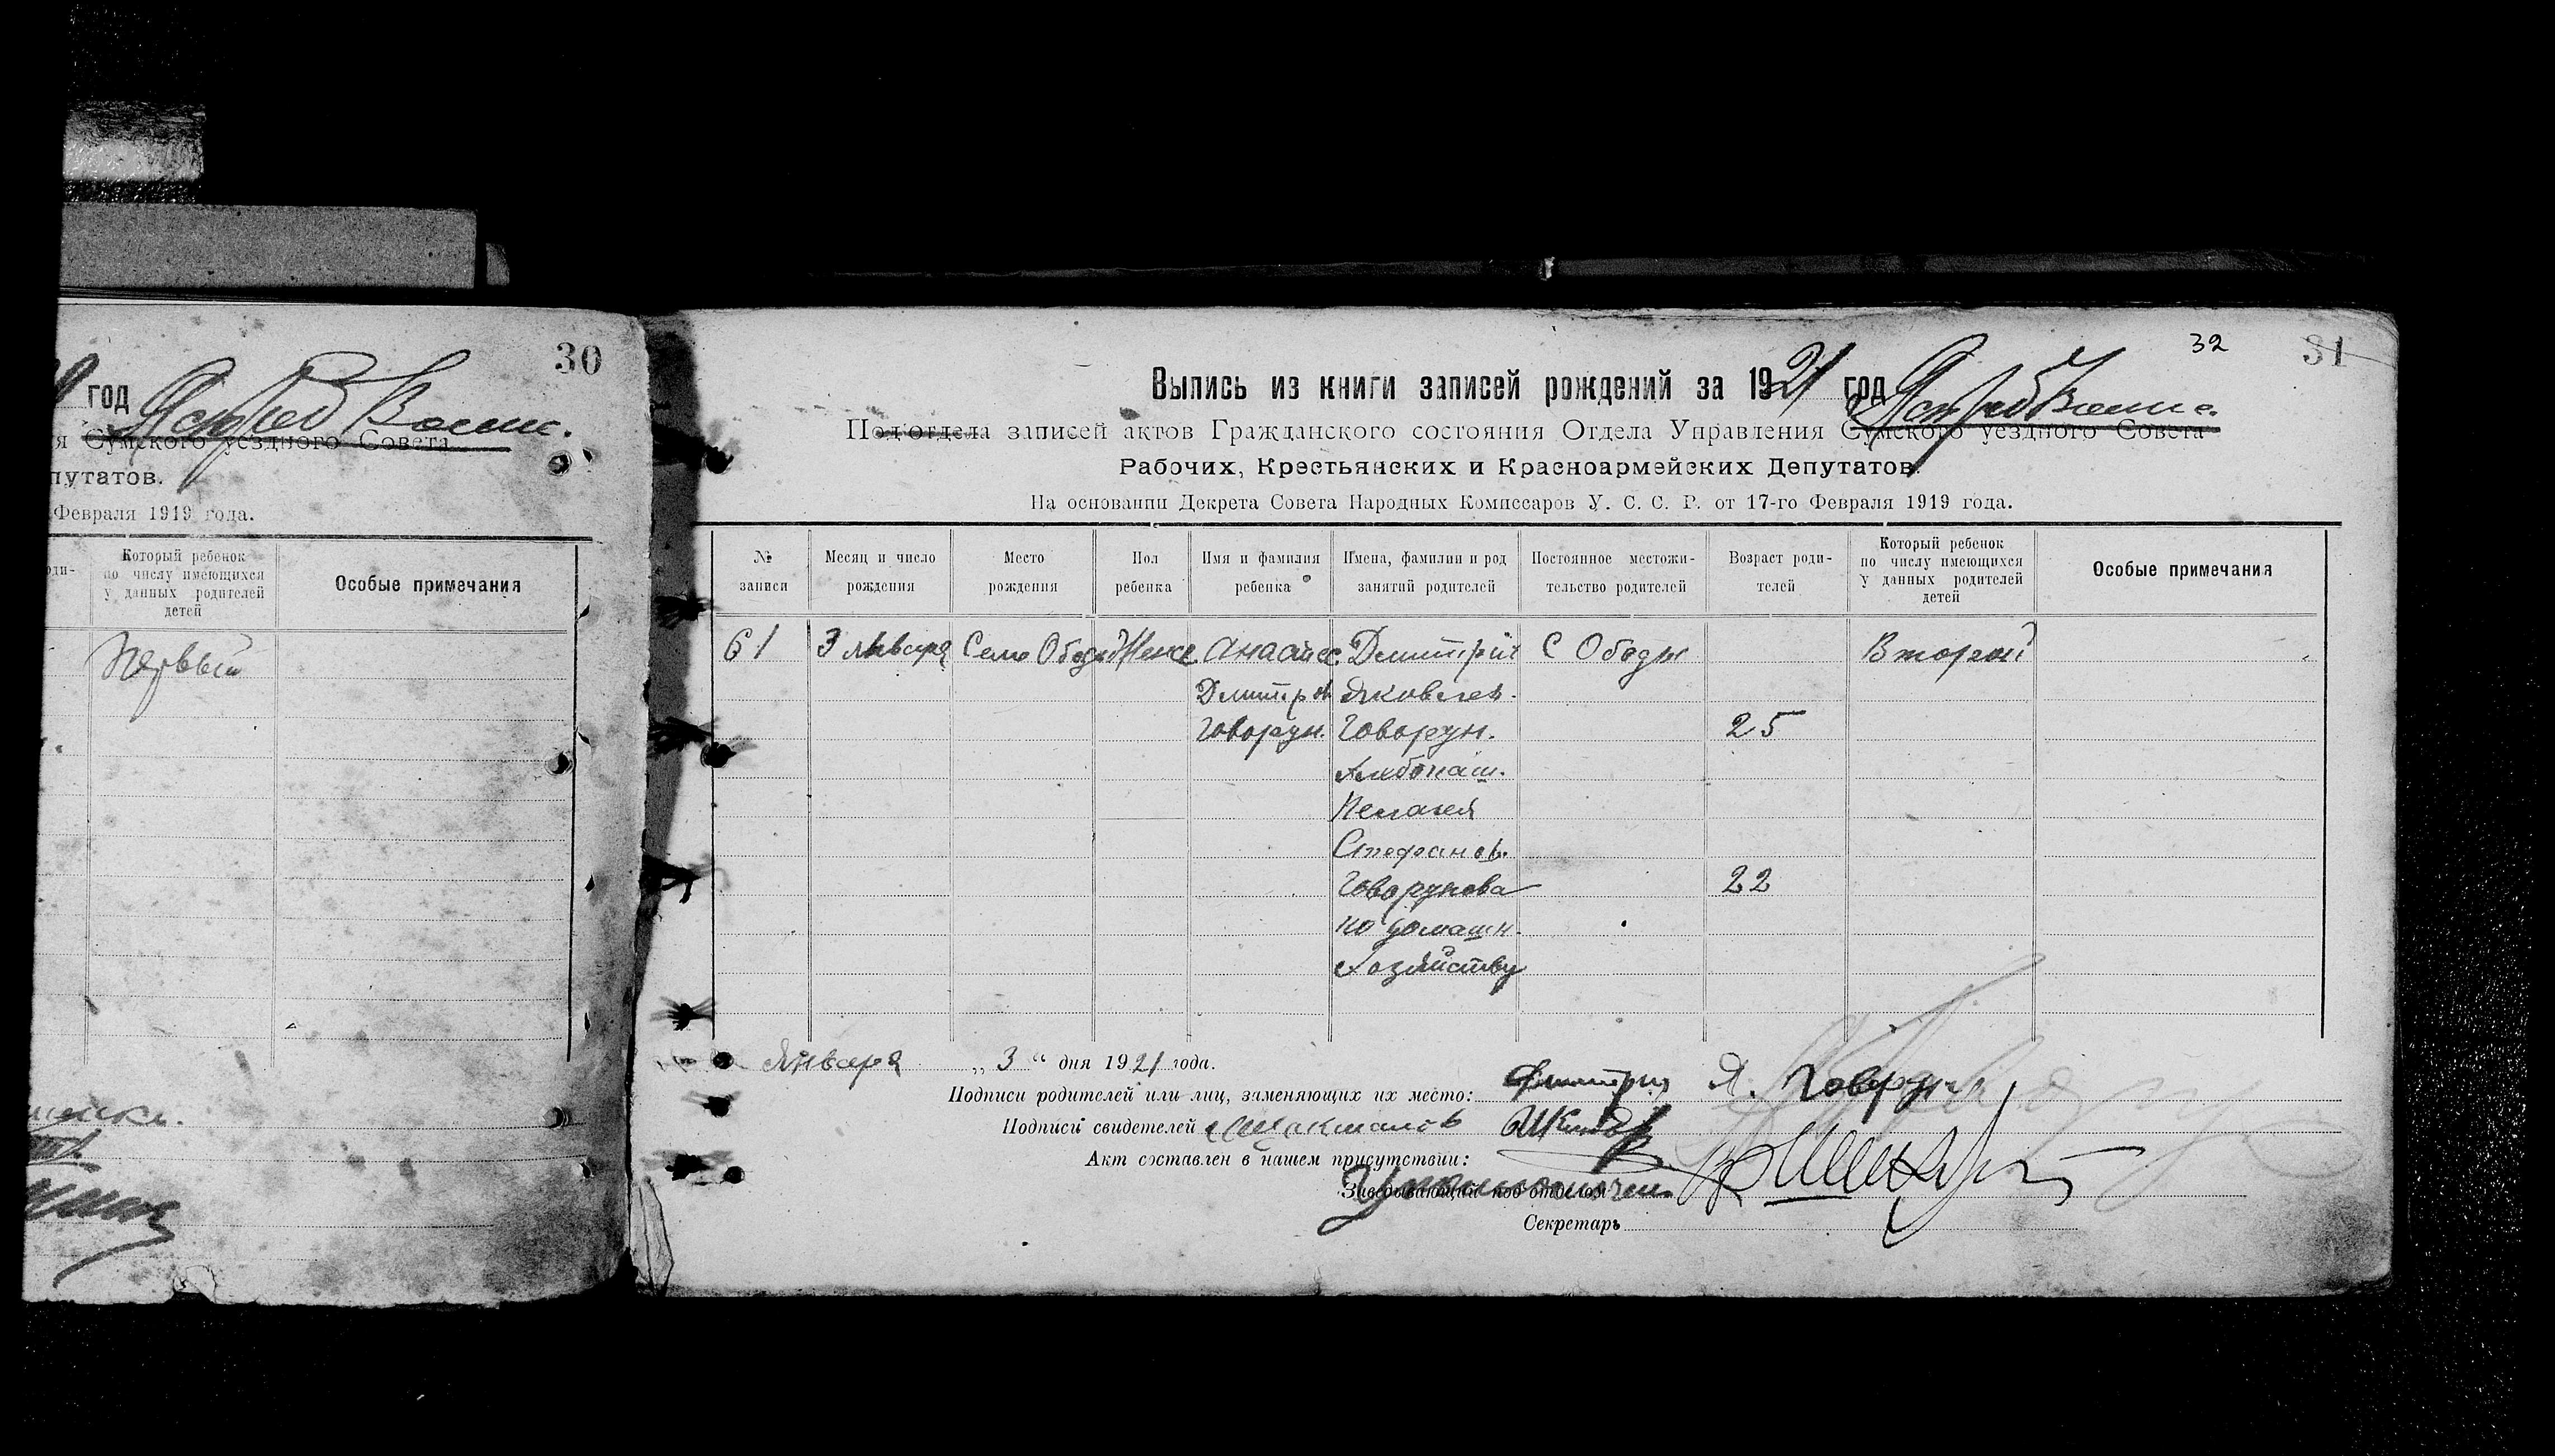 30
год
я Сумского уездного Совета
путатов.
Февраля 1919 года.
оди-
Который ребенок
по числу имеющихся
у данных родителей
детей
Особые примечания
Первый
32
31
Выпись из книги записей рождений за 1921 год
Подотдела записей актов Гражданского состояния Отдела Управления Сумского уездного Совета
Рабочих, Крестьянских и Красноармейских Депутатов.
На основании Декрета Совета Народных Комиссаров У. С. С. Р. от 17-го Февраля 1919 года.
№ записи
Месяц и число рождения
Место рождения
Пол ребенка
Имя и фамилия ребенка
Имена, фамилии и род занятий родителей
Постоянное местожи-
тельство родителей
Возраст роди-
телей
Который ребенок
по числу имеющихся
у данных родителей
детей
Особые примечания
61 3 января Село Ободы Женс Дмитрий С Ободы Второй
Дмитр Яковлев.
Говорун. Говорун. 25
Хлебопаш.
Пелагея
Стефанов.
Говорунова 22
по домашн.
хозяйству
Января „ 3 “ дня 1921 года.
Подписи родителей или лиц, заменяющих их место: Дмитрий Я. Говорун
Подписи свидетелей
Акт составлен в нашем присутствии:
Заведывающий под отделом
Секретарь